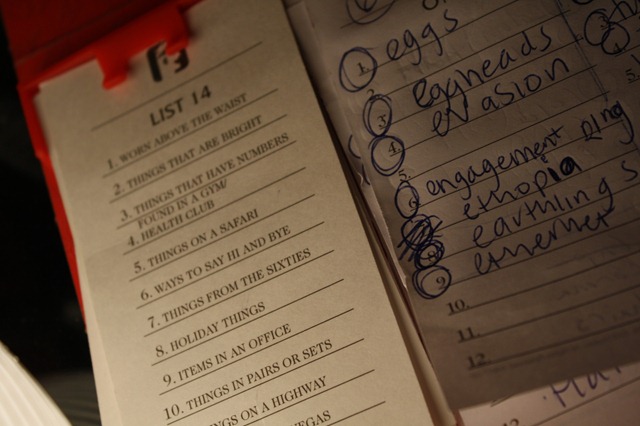 LIST 14
1. WORN ABOVE THE WAIST
2. THINGS THAT ARE BRIGHT
3. THINGS THAT HAVE NUMBERS
4. FOUND IN A GYM/
HEALTH CLUB
5. THINGS ON A SAFARI
6. WAYS TO SAY HI AND BYE
7. THINGS FROM THE SIXTIES
8. HOLIDAY THINGS
9. ITEMS IN AN OFFICE
10. THINGS IN PAIRS OR SETS
NGS ON A HIGHWAY
EGAS
1. eggs
2.
3. eggheads
4. evasion
5.
6. engagement ring
ethopia
earthlings
9. ethernet
10.
11.
12.